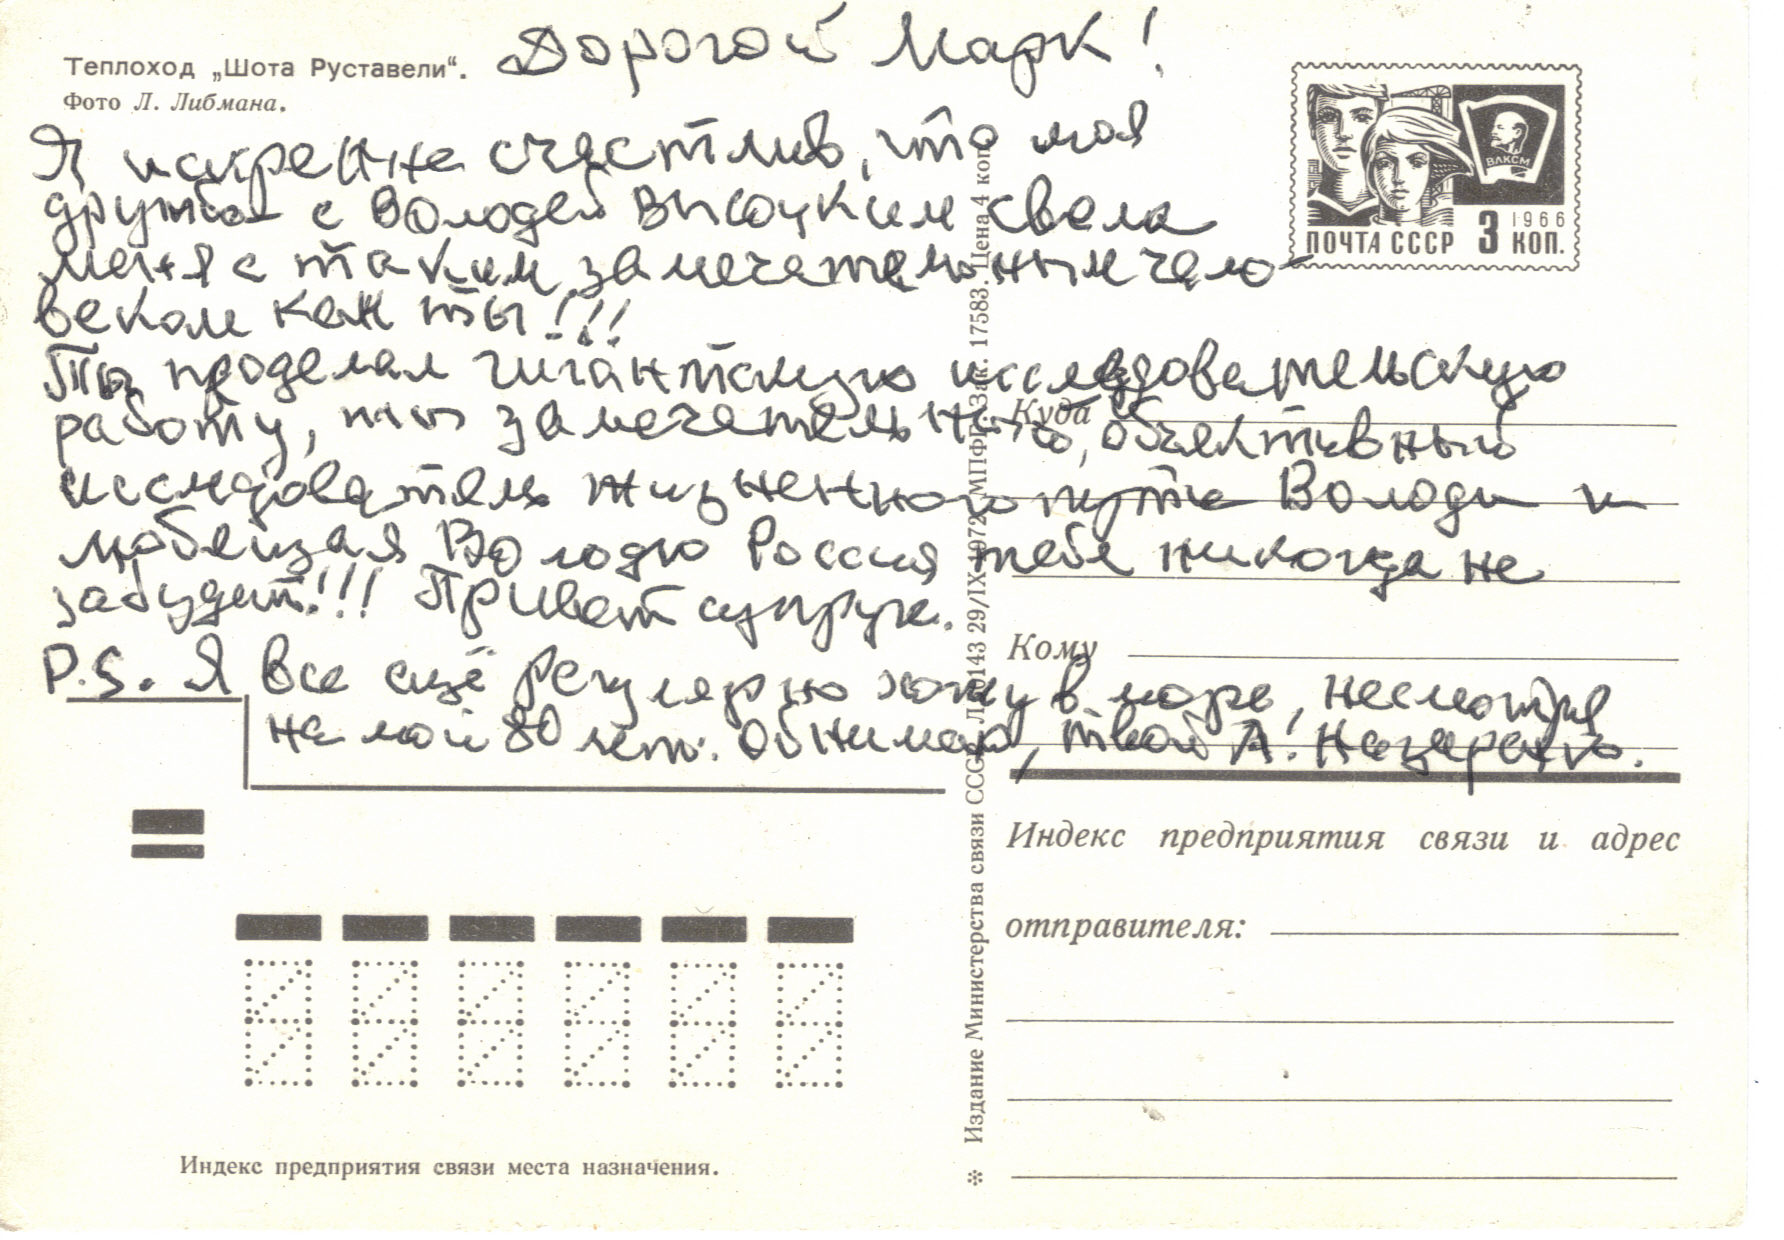 Теплоход „Шота Руставели“.
Фото Л. Либмана.
Дорогой Марк!
Я искренне счастлив, что моя
дружба с Володей Высоцким свела
меня с таким замечательным чело-
веком как ты!!!
Ты проделал гигантскую исследовательскую
работу, ты замечательный, объективный
исследователь жизненного пути Володи и
любящая Володю Россия тебя никогда не
забудет!!! Привет супруге.
P.S. Я все ещё регулярно хожу в море, несмотря
на мои 80 лет. Обнимаю, твой А. Назаренко.
ВЛКСМ
1966
ПОЧТА СССР 3 КОП.
Куда
Кому
Индекс предприятия связи и адрес
отправителя:
✻ Издание Министерства связи СССР. 29/IX-1972 г. МПФГ. Зак. 17583. Цена 4 коп.
Индекс предприятия связи места назначения.